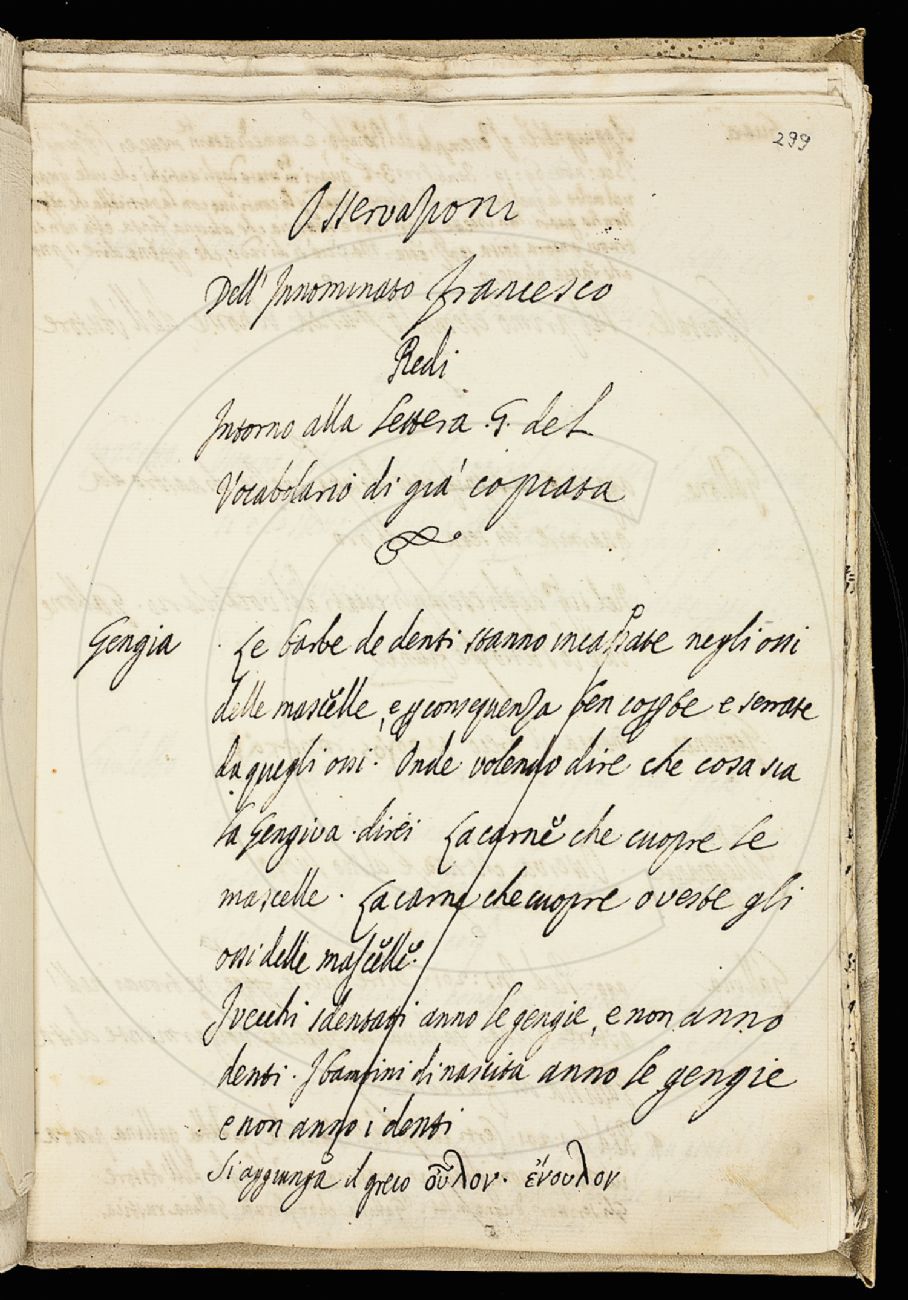 299
Osservazioni
Dell' Innominato Francesco
Redi
Intorno alla Lettera .G. del
Vocabolario di già copiata
Gengia . Le barbe de denti stanno incassate negli ossi
delle mascelle, e p conseguenza ben coperte e serrate
da quegli ossi. Onde volendo dire che cosa sia
la Gengiva . direi La carne che cuopre le
mascelle. La carne che cuopre o veste gli
ossi delle mascelle.
I vecchi sdentati anno le gengie, e non anno
denti. I bambini di nascita anno le gengie
e non anno i denti
Si aggiunga il greco οὖλον. ἔνουλον